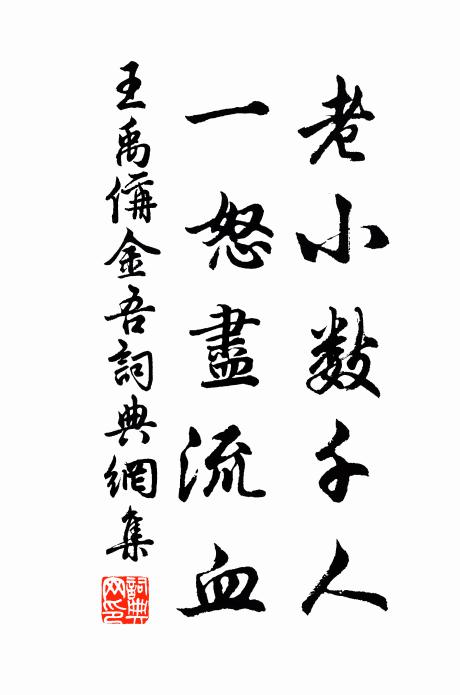 老小數千人
一怒盡流血
王禹偁金吾詞典網集
詞典網印